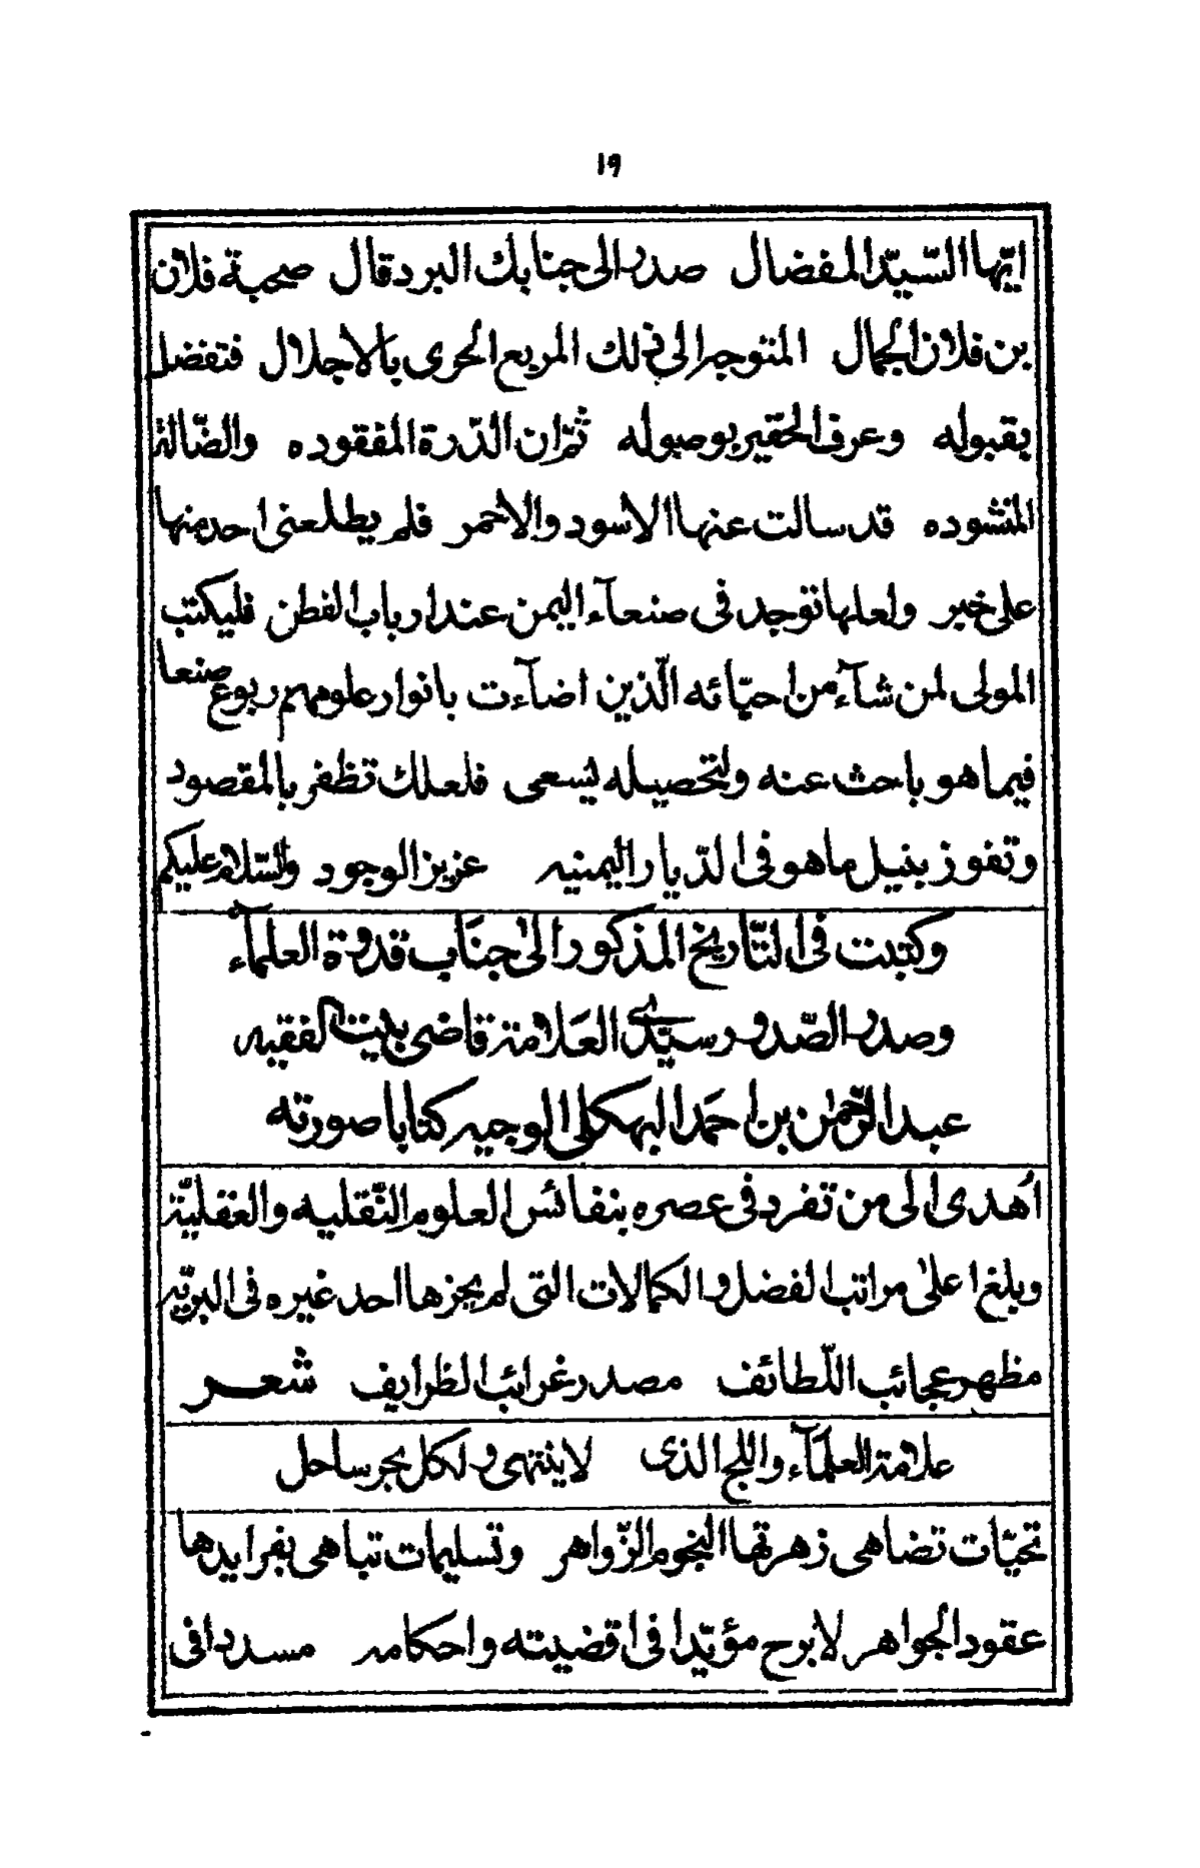 ١٩
ايّها السّيّد المفضال صدر الى جنابك البردقال صحبة فلان
بن فلان الجمال المتوجه الى ذلك المربع الحرى بالاجلال فتفضل
بقبوله وعرف الحقير بوصوله ثمّ ان الدّرة المفقوده والضّالة
المنشوده قد سالت عنها الاسود والاحمر فلم يطلعنى احد منها
على خبر ولعلها توجد فى صنعآء اليمن عند ارباب الفطن فليكتب
المولى لمن شآء من احبّائه الّذين اضآءت بانوار علومهم ربوع صنعا
فيما هو باحث عنه ولتحصيله يسعى فلعلك تظفر بالمقصود
وتفوز بنيل ما هو فى الدّيار اليمنيه عزيز الوجود والسّلام عليكم
وكتبت فى التّاريخ المذكور الىٰ جنَاب قدوة العلمآء
وصدر الصّدور سيّدى العَلامة قاضى بيت الفقيه
عبد الرّحمٰن بن احمَد البهكلى الوجيه كتابا صورته
اُهدى الى من تفرد فى عصره بنفائس العلوم النّقليه والعقليّة
وبلغ اعلىٰ مراتب الفضل والكمالات التى لم يحزها احد غيره فى البريّه
مظهر عجائب اللّطائف مصدر غرائب الظرايف شعر
علامة العلمَآء واللج الذى لا ينتهى ولكل بحر ساحل
تحيّات تضاهى زهرتها النجوم الزّواهر وتسليمات تباهى بفرايدها
عقود الجواهر لا برح مؤيّدا فى اقضيته واحكامه مسددا فى